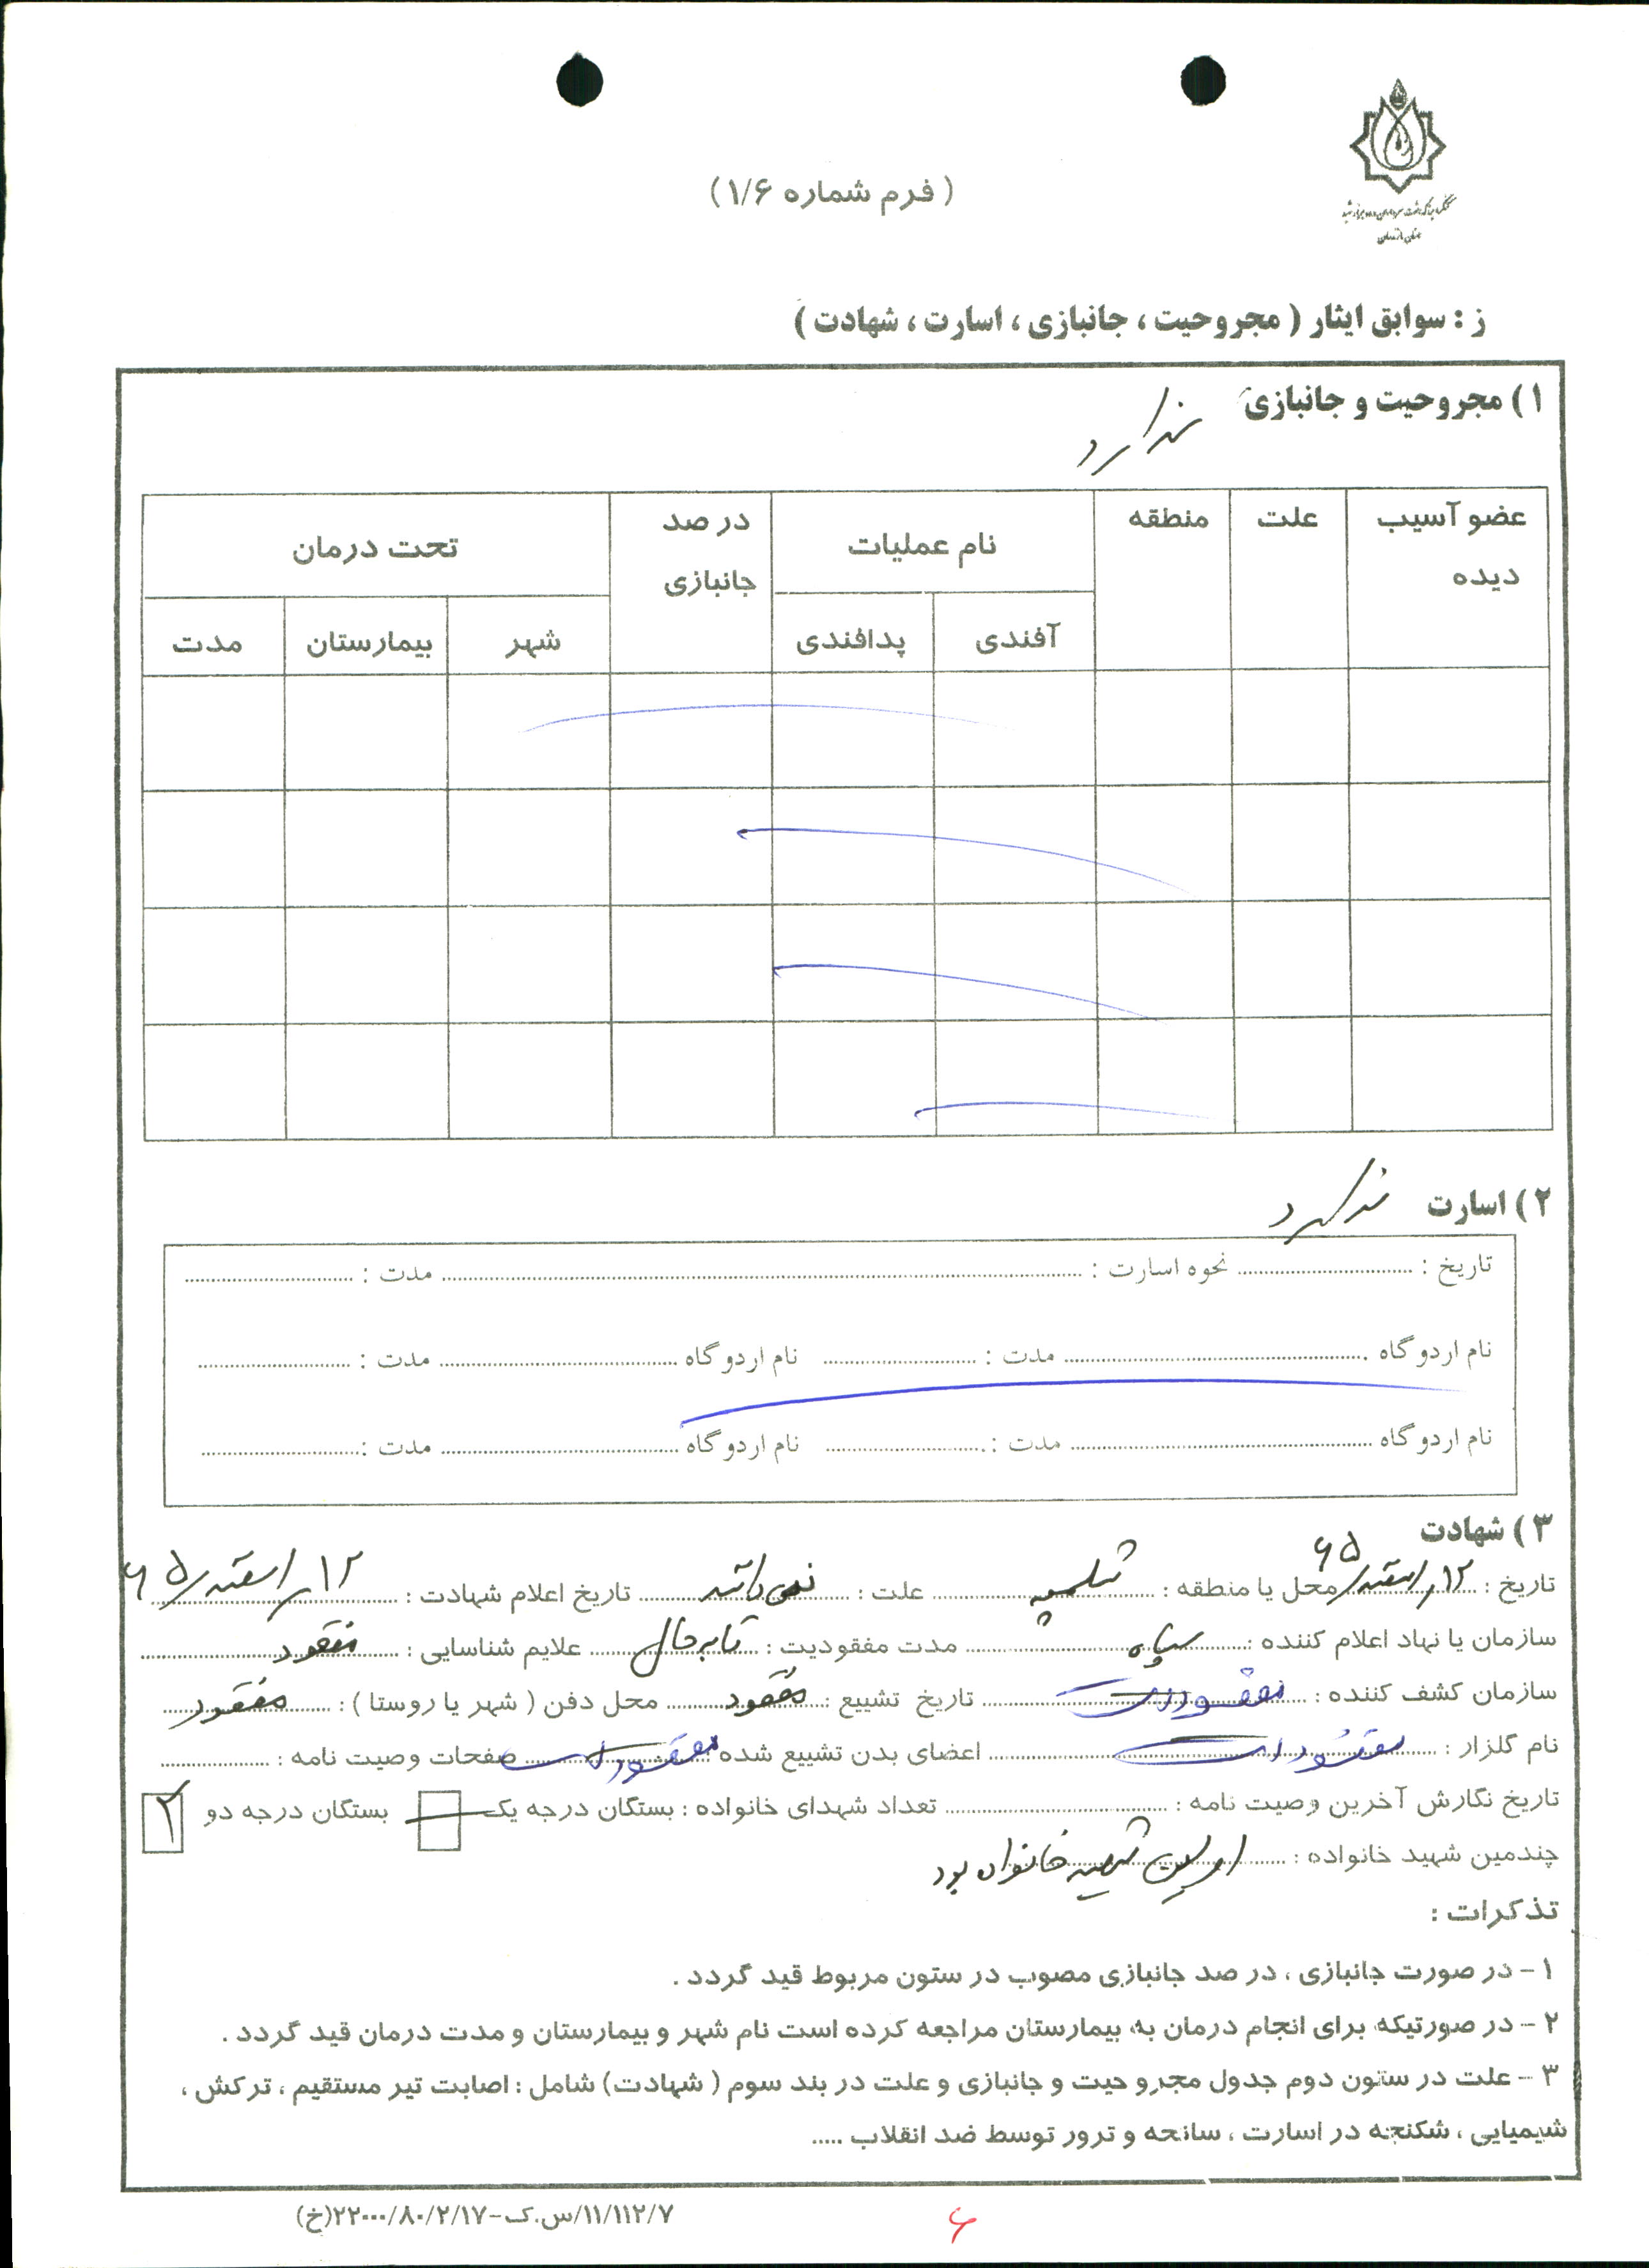 ( فرم شماره ۱/۶ )
ز : سوابق ایثار ( مجروحیت ، جانبازی ، اسارت ، شهادت )
۱ ) مجروحیت و جانبازی ندارد
عضو آسیب دیده علت منطقه نام عملیات در صد جانبازی تحت درمان
آفندی پدافندی شهر بیمارستان مدت
۲ ) اسارت ندارد
تاریخ : نحوه اسارت : مدت :
نام اردو گاه مدت : نام اردو گاه مدت :
نام اردو گاه مدت : نام اردو گاه مدت :
۳ ) شهادت
تاریخ : ۱۲ اسفند ۶۵ محل یا منطقه : شلمچه علت : نمی باشد تاریخ اعلام شهادت : ۱۲ اسفند ۶۵
سازمان یا نهاد اعلام کننده : سپاه مدت مفقودیت : تا به حال علایم شناسایی : مفقود
سازمان کشف کننده : مفقود است تاریخ تشییع : مفقود محل دفن ( شهر یا روستا ) : مفقود
نام گلزار : مفقود است اعضای بدن تشییع شده مفقود است صفحات وصیت نامه :
تاریخ نگارش آخرین وصیت نامه : تعداد شهدای خانواده : بستگان درجه یک بستگان درجه دو ۲
چندمین شهید خانواده : اولین شهید خانواده بود
تذکرات :
۱ - در صورت جانبازی ، در صد جانبازی مصوب در ستون مربوط قید گردد .
۲ - در صورتیکه برای انجام درمان به بیمارستان مراجعه کرده است نام شهر و بیمارستان و مدت درمان قید گردد .
۳ - علت در ستون دوم جدول مجرو حیت و جانبازی و علت در بند سوم ( شهادت) شامل : اصابت تیر مستقیم ، ترکش ،
شیمیایی ، شکنجه در اسارت ، سانحه و ترور توسط ضد انقلاب .....
۱۱/۱۱۲/۷/س.ک-۲۲۰۰۰/۸۰/۲/۱۷(خ)
۶